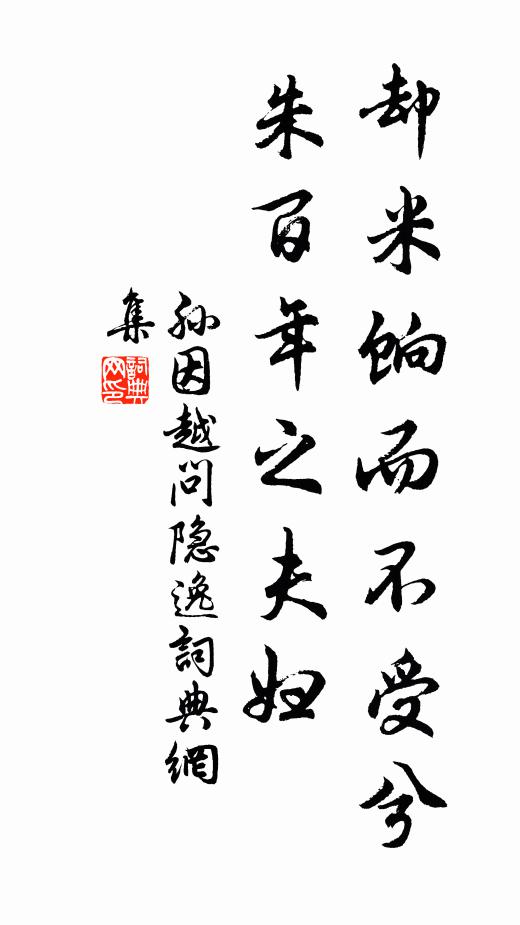 却米饷而不受兮
朱百年之夫妇
孙因越问隐逸詞典網
集
詞典
网印